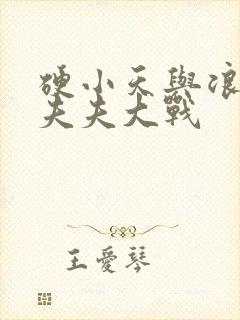 硬小天與浪
夫夫大戰
王愛琴